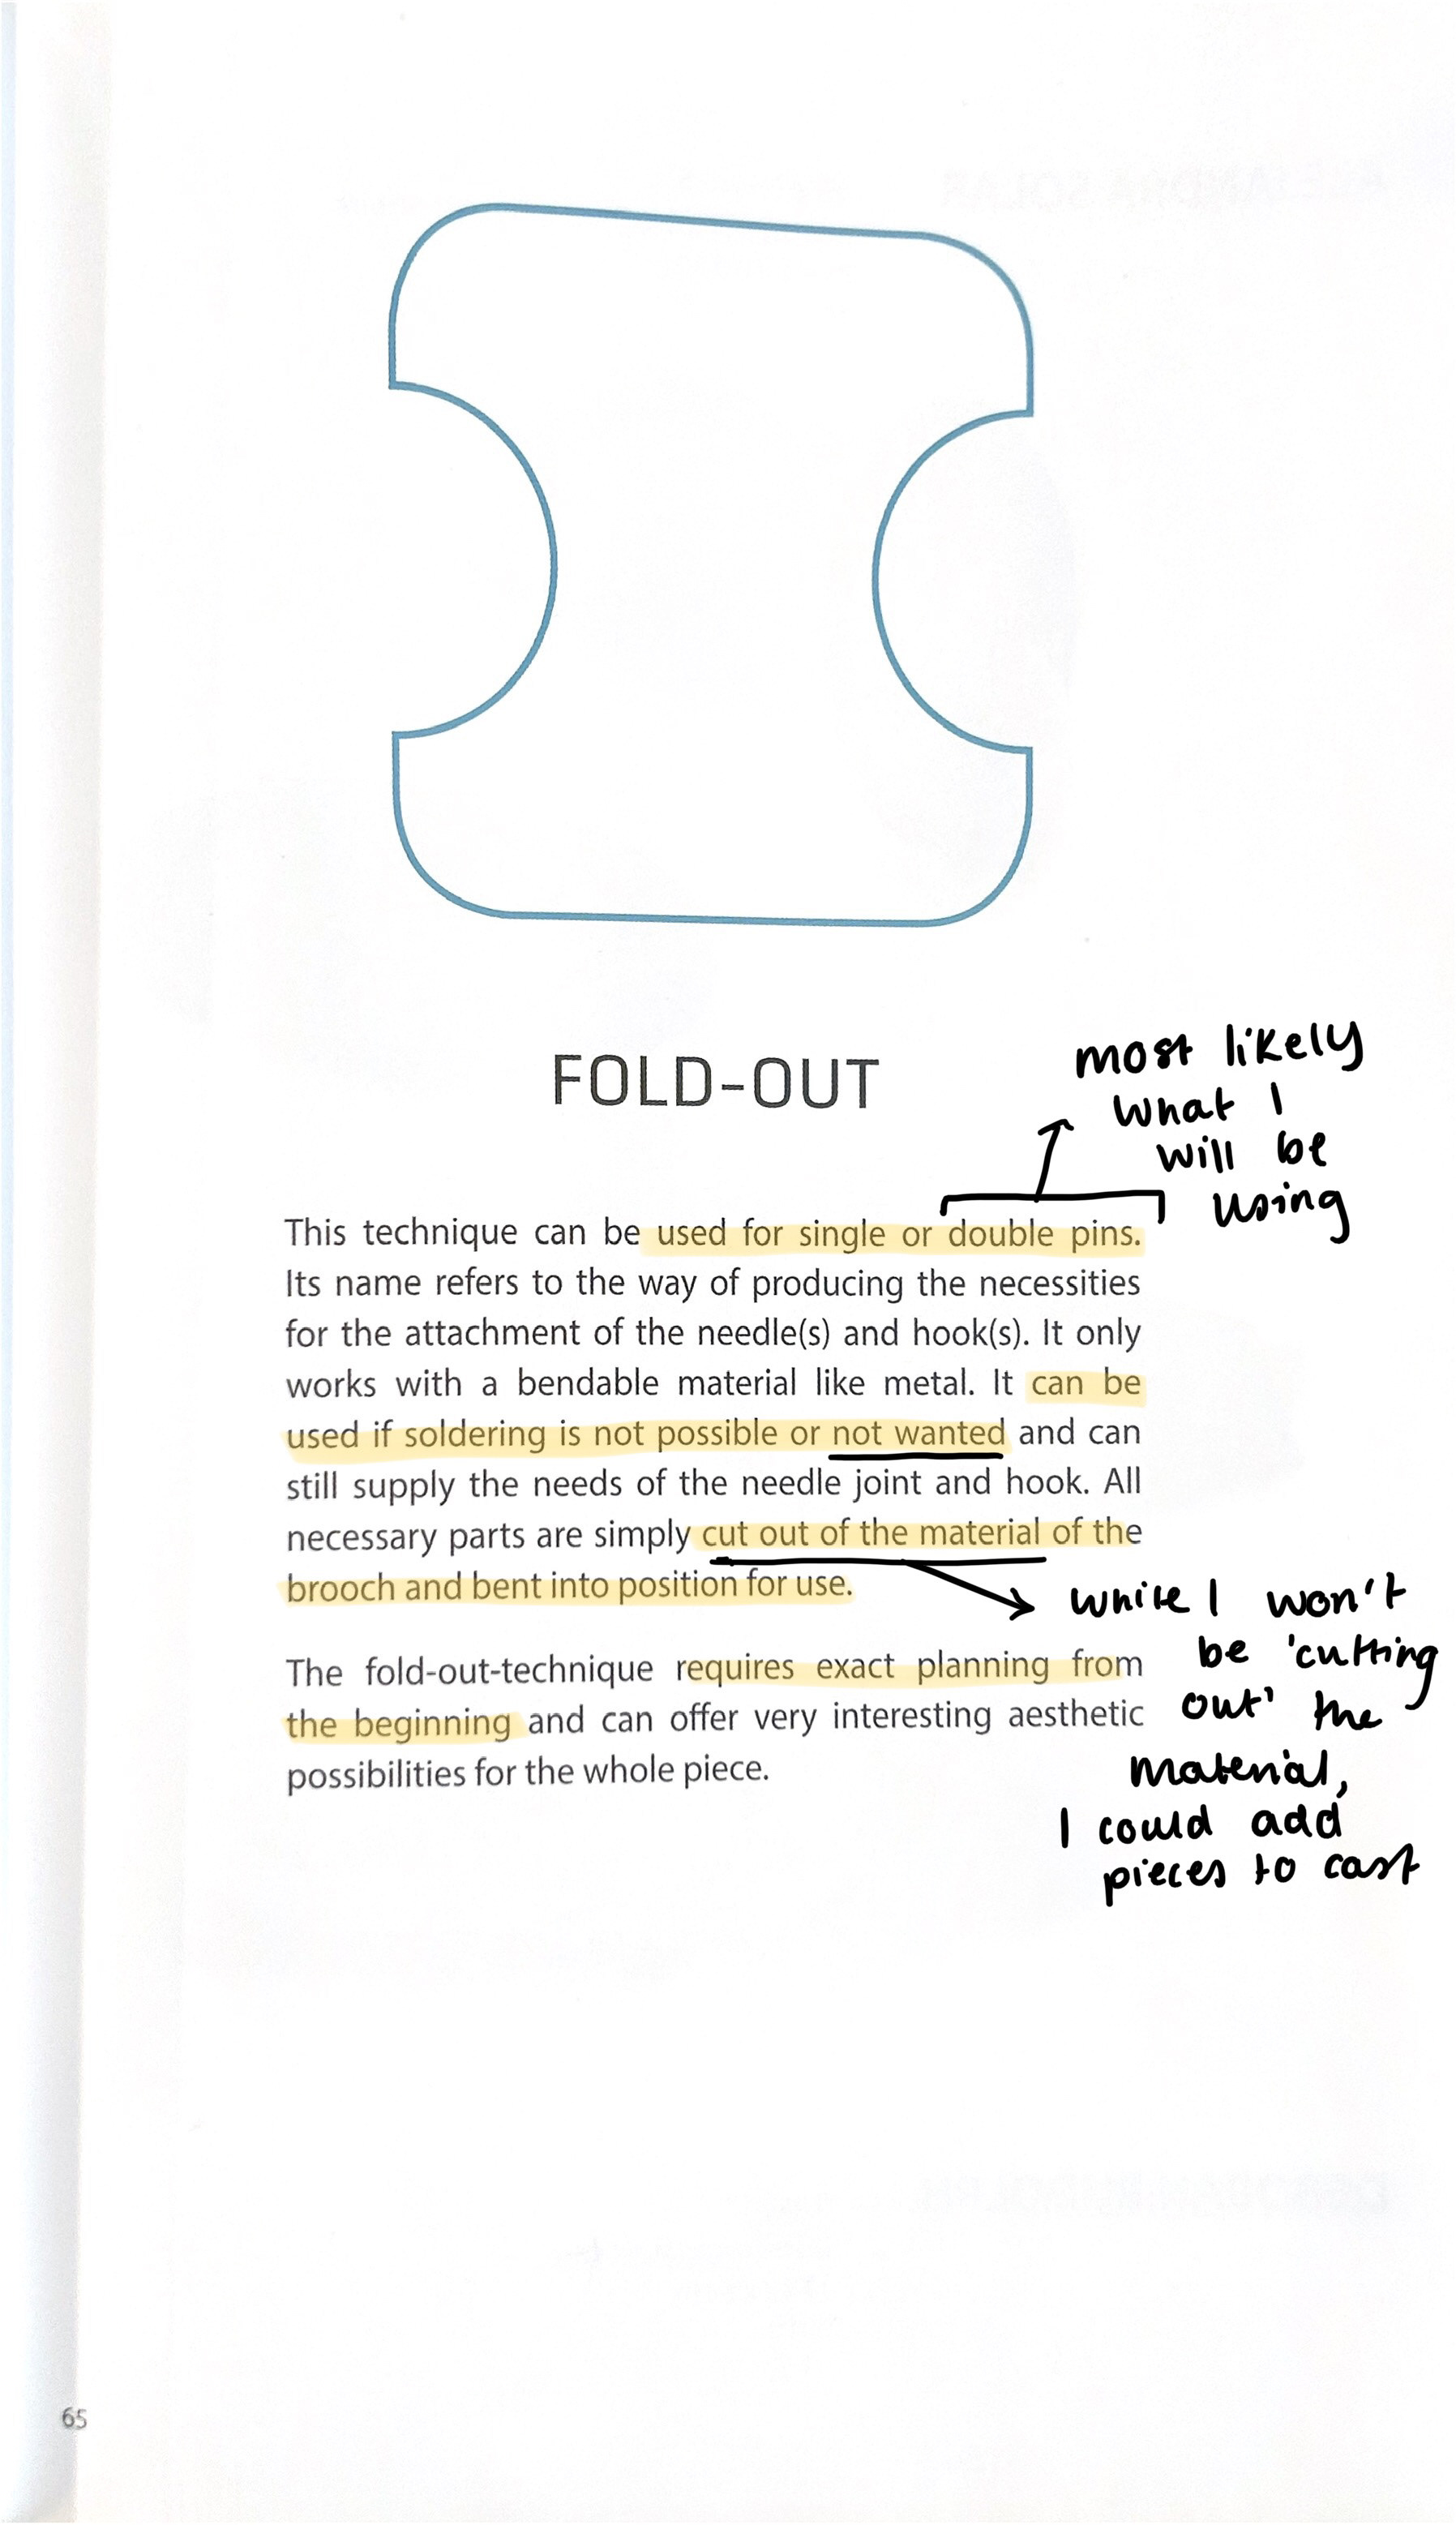 FOLD-OUT
most likely
what I
will be
using
This technique can be used for single or double pins.
Its name refers to the way of producing the necessities
for the attachment of the needle(s) and hook(s). It only
works with a bendable material like metal. It can be
used if soldering is not possible or not wanted and can
still supply the needs of the needle joint and hook. All
necessary parts are simply cut out of the material of the
brooch and bent into position for use.
while I won't
be 'cutting
out' the
material,
I could add
pieces to cast
The fold-out-technique requires exact planning from
the beginning and can offer very interesting aesthetic
possibilities for the whole piece.
65